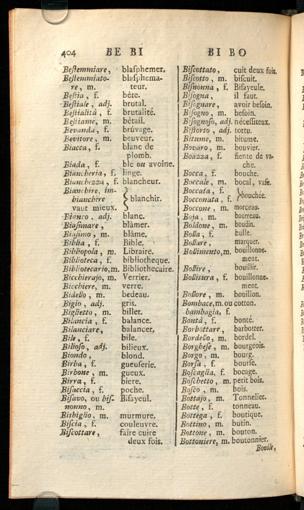 404 BE BI BI BO
Bestemmiare, blasphemer.
Bestemmiato-
re, m. blasphema-
teur.
Bestia, f. bête.
Bestiale, adj. brutal.
Bestialità, f. brutalité.
Bestiame, m. bétail.
Bevanda, f. brûvage.
Bevitore, m. beuveur.
Biacca, f. blanc de
plomb.
Biada, f. blé ou avoine.
Biancheria, f. linge.
Bianchezza, f. blancheur.
Bianchire, im-
bianchire } blanchir.
vaut mieux.
Bianco, adj. blanc.
Biasimare, blâmer.
Biasimo, m. blâme.
Biblia, f. Bible.
Bibliopola, m. Libraire.
Biblioteca, f. bibliotheque.
Bibliotecario, m. Bibliothecaire.
Bicchierajo, m. Verrier.
Bicchiere, m. verre.
Bidello, m. bedeau.
Bigio, adj. gris.
Biglietto, m. billet.
Bilancia, f. balance.
Bilanciare, balancer.
Bile, f. bile.
Bilioso, adj. bilieux.
Biondo, blond.
Birba, f. gueuserie.
Birbone, m. gueux.
Birra, f. biere.
Bisaccia, f. poche.
Bisavo, ou bis-
nonno, m. Bisayeul.
Bisbiglio, m. murmure.
Biscia, f. couleuvre.
Biscottare, faire cuire
deux fois.
Biscottato, cuit deux fois.
Biscotto, m. biscuit.
Bisnonna, f. Bisayeule.
Bisogna, il faut.
Bisognare, avoir besoin.
Bisogno, m. besoin.
Bisognoso, adj. nécessiteux.
Bistorto, adj. tortu.
Bitume, m. bitume.
Bovaro, m. bouvier.
Boazza, f. fiente de va-
che.
Bocca, f. bouche.
Boccale, m. bocal, vase.
Boccata, f. } bouchée.
Bocconata, f.
Boccone, m. morceau.
Boja, m. bourreau.
Boldone, m. boudin.
Bolla, f. bulle.
Bollare, marquer.
Bollimento, m. bouillonne-
ment.
Bollire, bouillir.
Bollitura, f. bouillonne-
ment.
Bollore, m. bouillon.
Bombace, m. ou cotton.
bambagia, f.
Bontà, f. bonté.
Borbottare, barbotter.
Bordello, m. bordel.
Borghese, m. bourgeois.
Borgo, m. bourg.
Borsa, f. bourse.
Boscaglia, f. bocage.
Boschetto, m. petit bois.
Bosco, m. bois.
Bottajo, m. Tonnelier.
Botte, f. tonneau.
Bottega, f. boutique.
Bottino, m. butin.
Bottone, m. bouton.
Bottoniere, m. boutonnier.